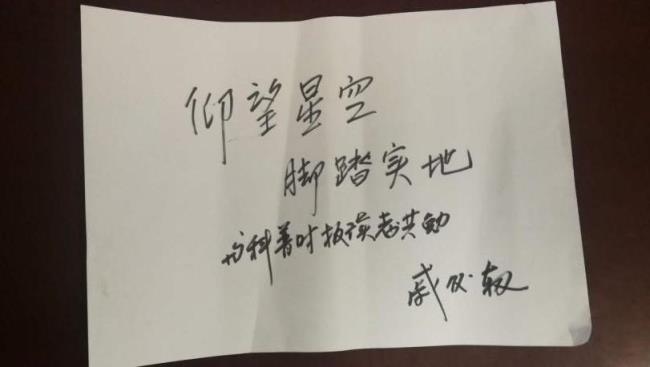 仰望星空
脚踏实地
与科普时报读者共勉
戚发轫